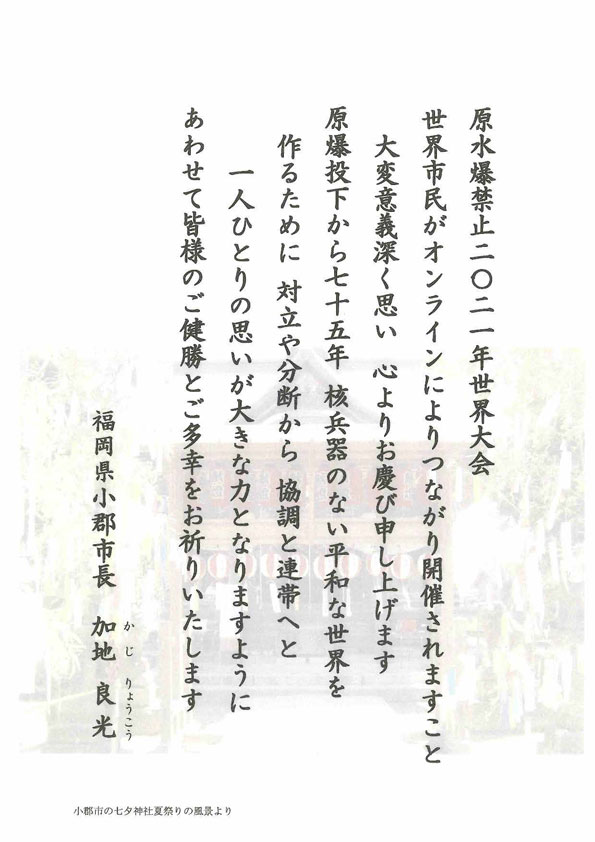 原水爆禁止二〇二一年世界大会
世界市民がオンラインによりつながり開催されますこと
大変意義深く思い 心よりお慶び申し上げます
原爆投下から七十五年 核兵器のない平和な世界を
作るために 対立や分断から 協調と連帯へと
一人ひとりの思いが大きな力となりますように
あわせて皆様のご健勝とご多幸をお祈りいたします
福岡県小郡市長 加地 良光
かじ りょうこう
小郡市の七夕神社夏祭りの風景より